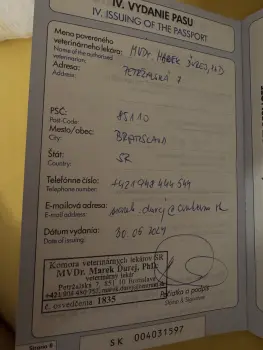 IV. VYDANIE PASU
IV. ISSUING OF THE PASSPORT
Meno povereného
veterinárneho lekára:
Name of the authorised
veterinarian:
MVDr. MAREK ĎUREJ, PhD.
Adresa:
Address:
PETRŽALSKÁ 7
PSČ:
Post-Code:
85110
Mesto/obec:
City:
BRATISLAVA
Štát:
Country:
SR
Telefónne číslo:
Telephone number:
+421948
E-mailová adresa:
E-mail address:
marek.durej@
Dátum vydania:
Date of issuing:
30.05.2024
Komora veterinárnych lekárov SR
MVDr. Marek Ďurej, PhD.
veterinárny lekár
Petržalská 7, 851 10
č. osvedčenia: 1835
Pečiatka a podpis
Stamp & Signature
Strana 8
SK 004031597